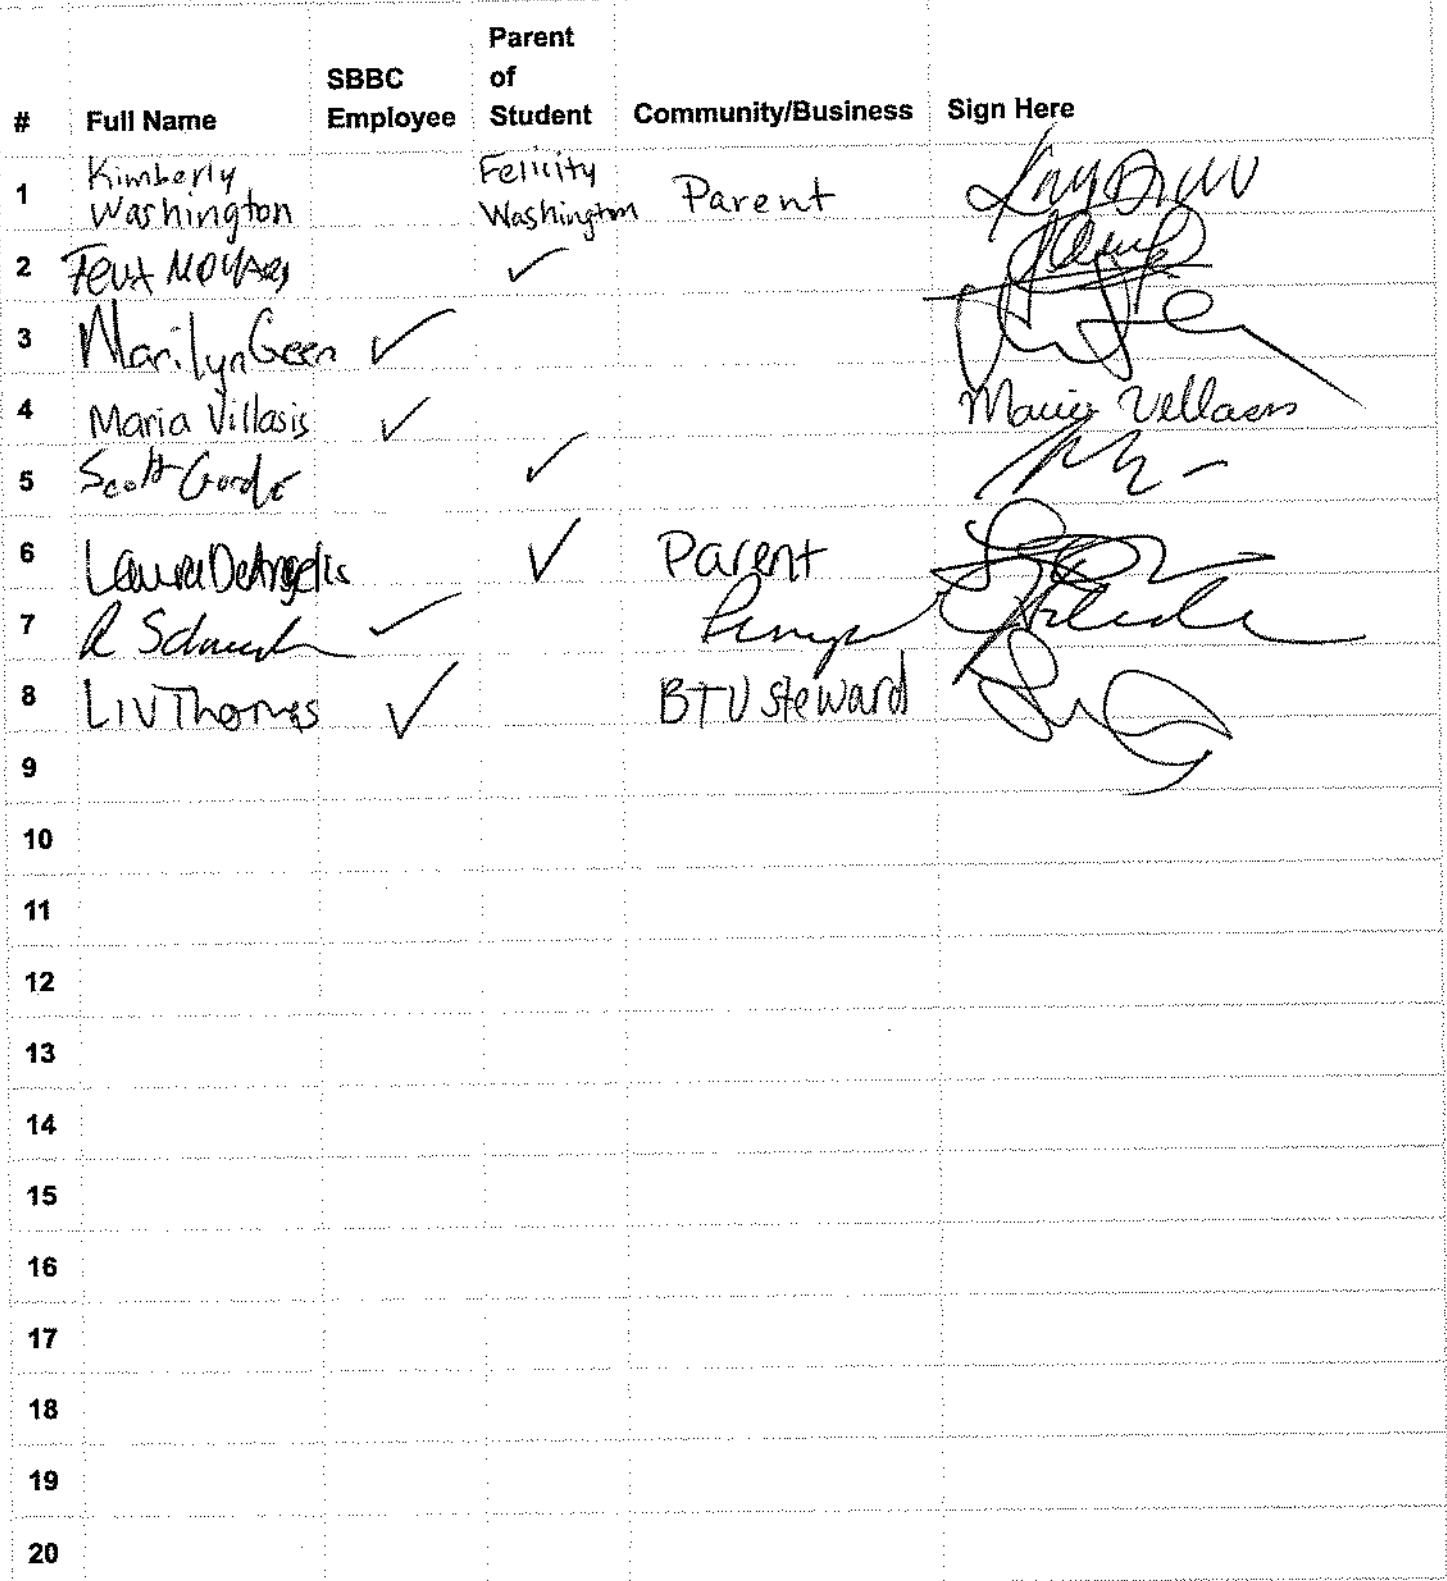 # Full Name SBBC Employee Parent of Student Community/Business Sign Here
1 Kimberly Washington Felicity Washington Parent
2 ✓
3 Marilyn Geen ✓
4 Maria Villasis ✓ Maria Villasis
5 Scott ✓
6 Laura DeAngelis ✓ Parent
7 R ✓
8 Liv Thomas ✓ BTU steward
9
10
11
12
13
14
15
16
17
18
19
20